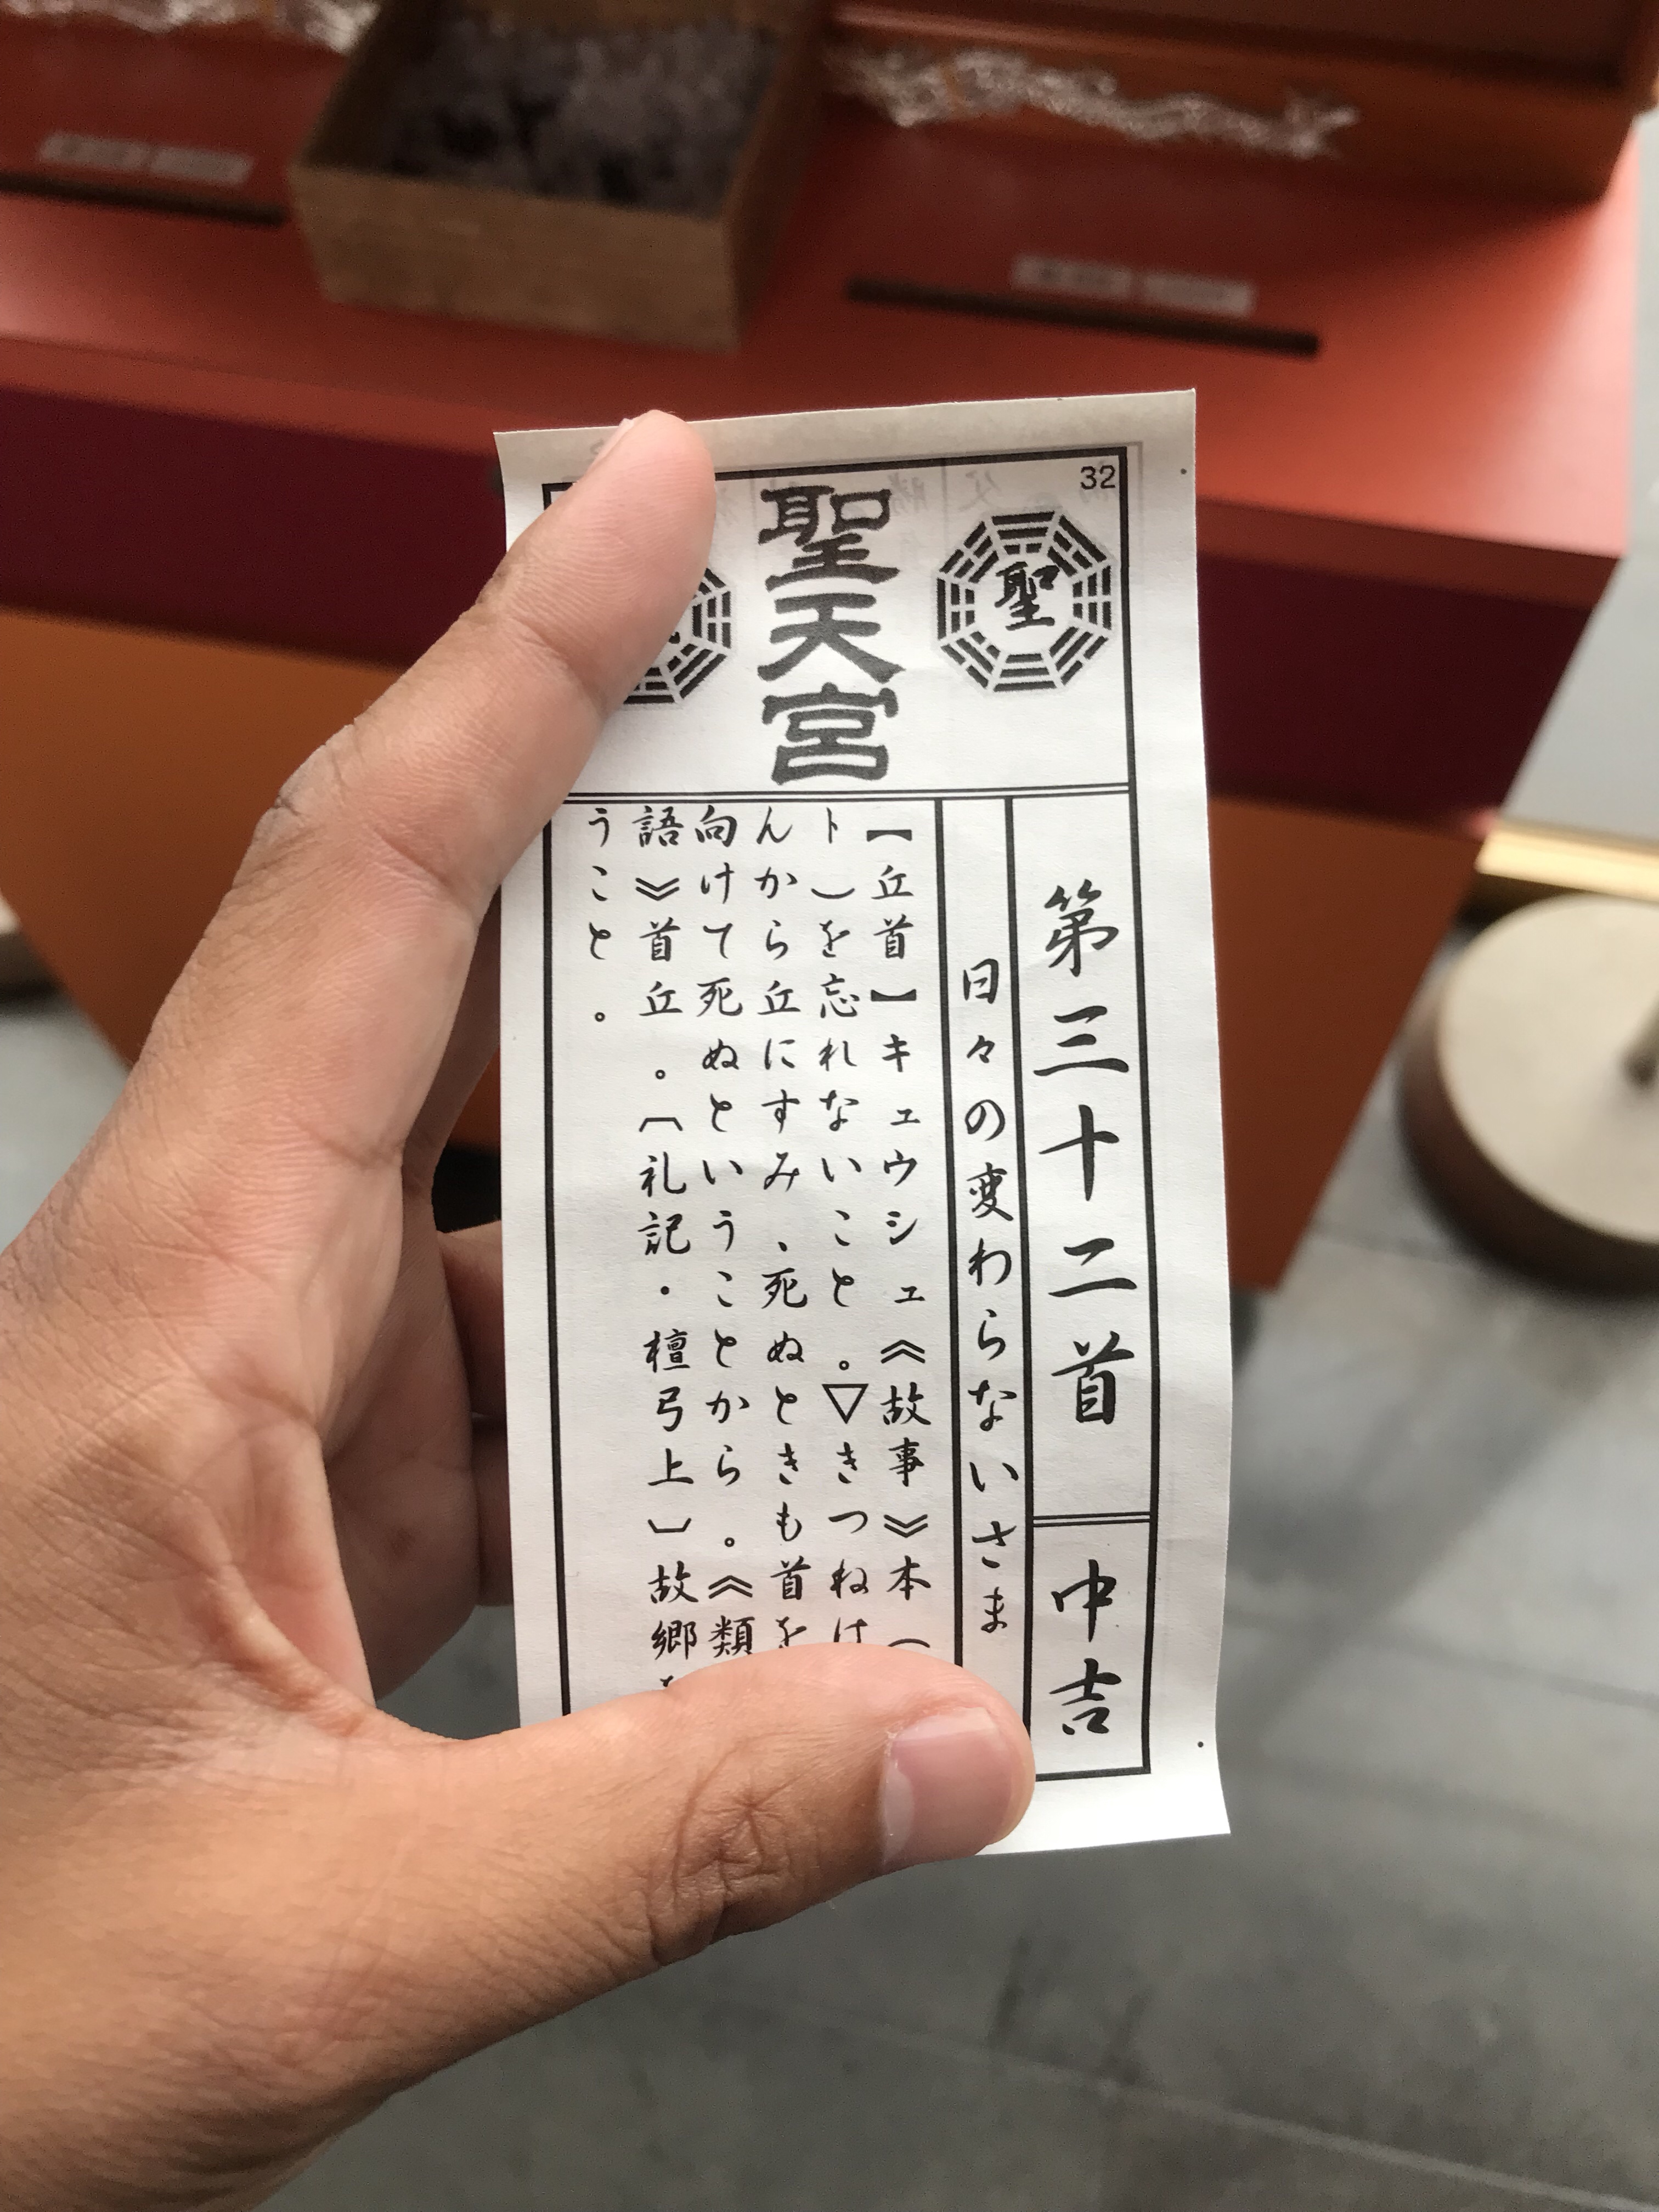 32
聖
聖天宮
第三十二首
中吉
日々の変わらないさま
【丘首】キュウシュ《故事》本（
ト）を忘れないこと。▽きつねは
んから丘にすみ、死ぬときも首を
向けて死ぬということから。《類
語》首丘。〔礼記・檀弓上〕故郷
うこと。